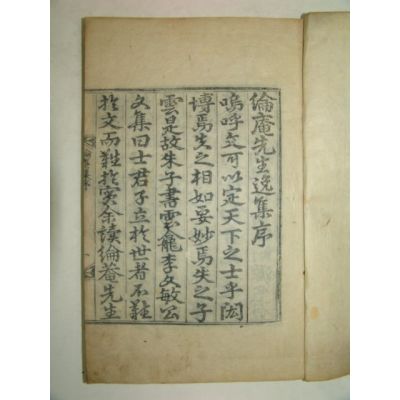 綸菴先生逸集序
嗚呼文可以定天下之士乎閎
博焉失之相如要妙焉失之子
雲是故朱子書雲龕李文敏公
文集曰士君子立於世者不難
於文而難於實余讀綸菴先生